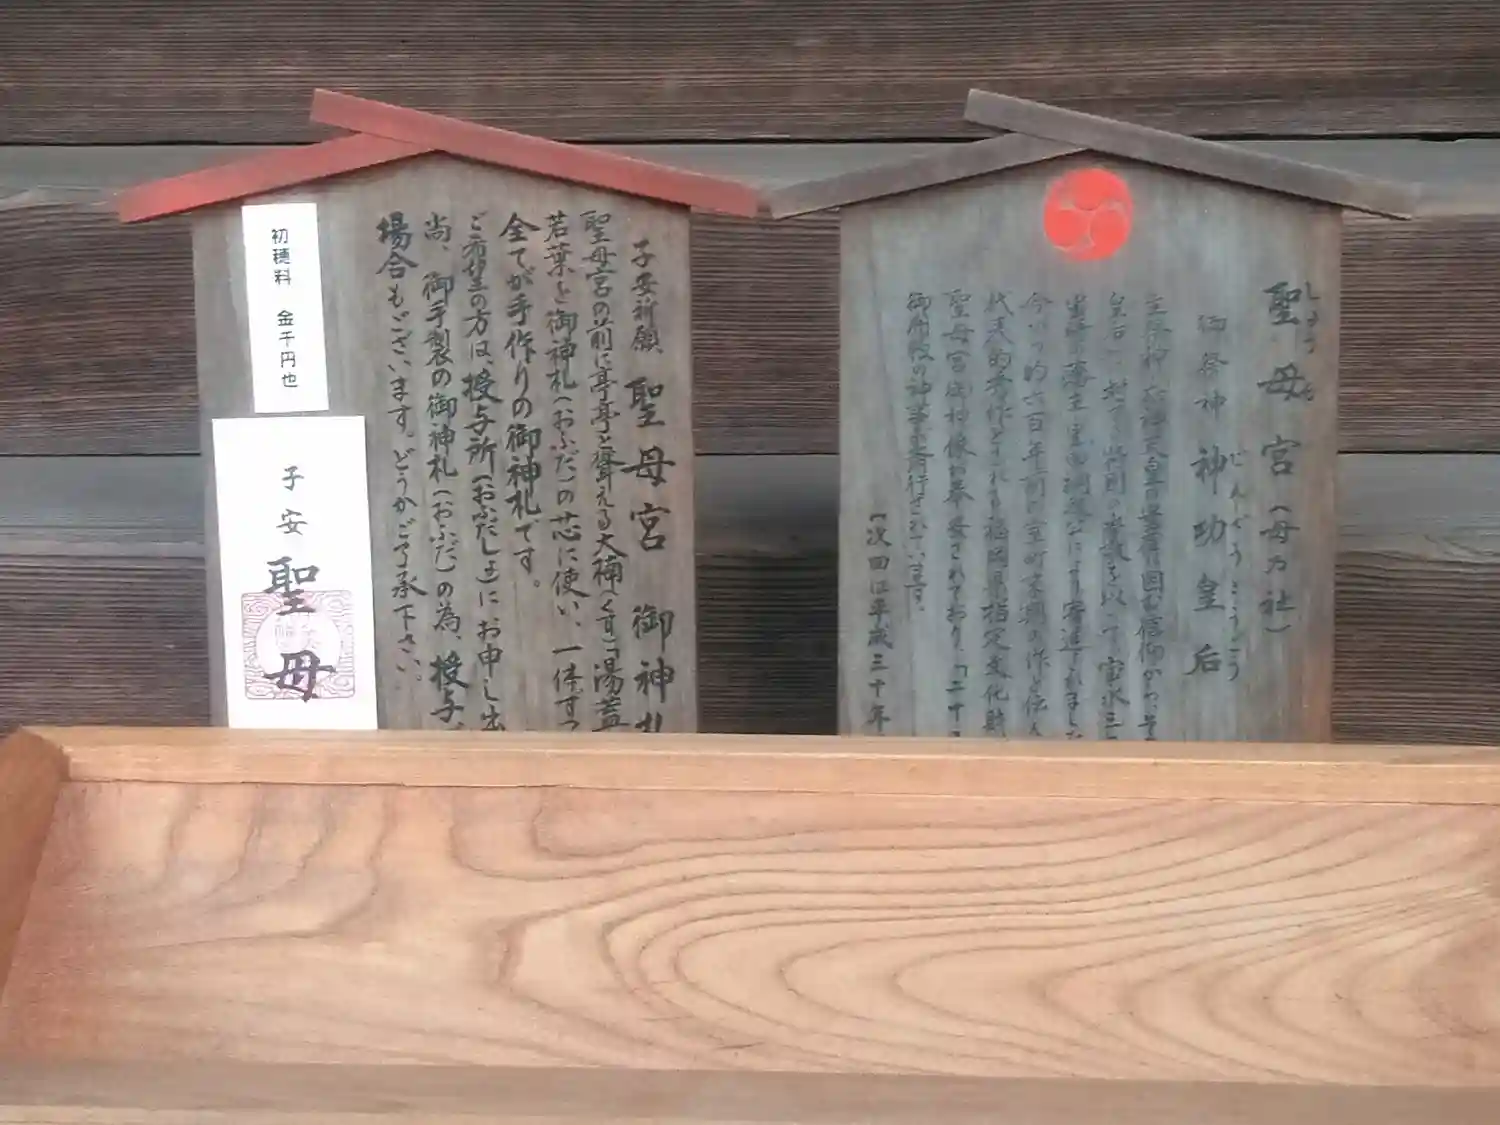 聖母宮(母乃社)
しょうも
御祭神 神功皇后
じんぐうこうごう
主祭神
皇后
今から約六百年前の室町末期の作と伝え
代表的秀作とされる福岡県指定文化財
聖母宮御神像が奉安されており、「二十
御開帳の神事が斎行されています。
(次回は平成三十年
子安祈願 聖母宮 御神札
聖母宮の前に亭亭と聳える大楠(くす)「湯蓋
若葉を御神札(おふだ)の芯に使い、一体ずつ
全てが手作りの御神札です。
ご希望の方は、授与所(おふだしょ)にお申し出
尚、御手製の御神札(おふだ)の為、授与
場合もございます。どうかご了承下さい。
初穂料 金千円也
子安
聖母